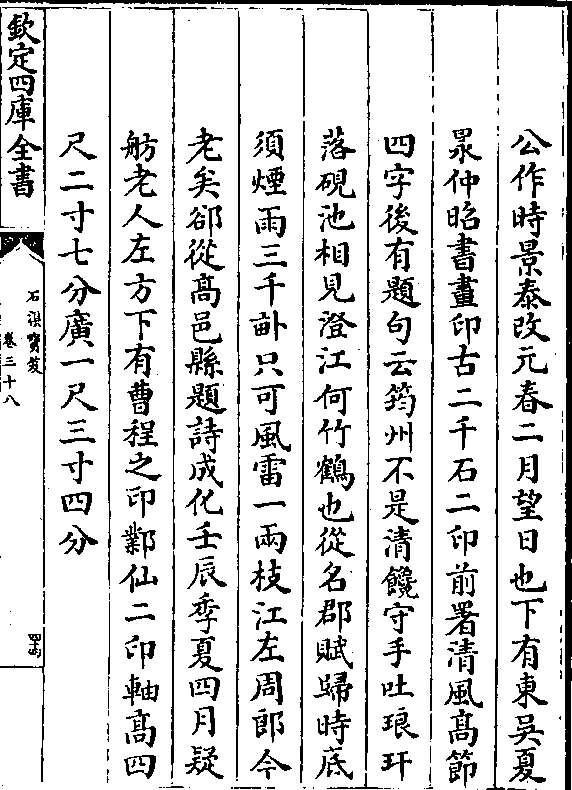 公作時景泰改元春二月望日也下有東吳夏
昶仲昭書畫印古二千石二印前署清風髙節
四字後有題句云筠州不是清饞守手吐琅玕
落硯池相見澄江何竹鶴也從名郡賦歸時底
須煙雨三千畝只可風雷一兩枝江左周郎今
老矣郤從髙邑縣題詩成化壬辰季夏四月疑
舫老人左方下有曹程之印酇仙二印軸髙四
尺二寸七分廣一尺三寸四分
欽定四庫全書
石渠寶笈
卷三十八